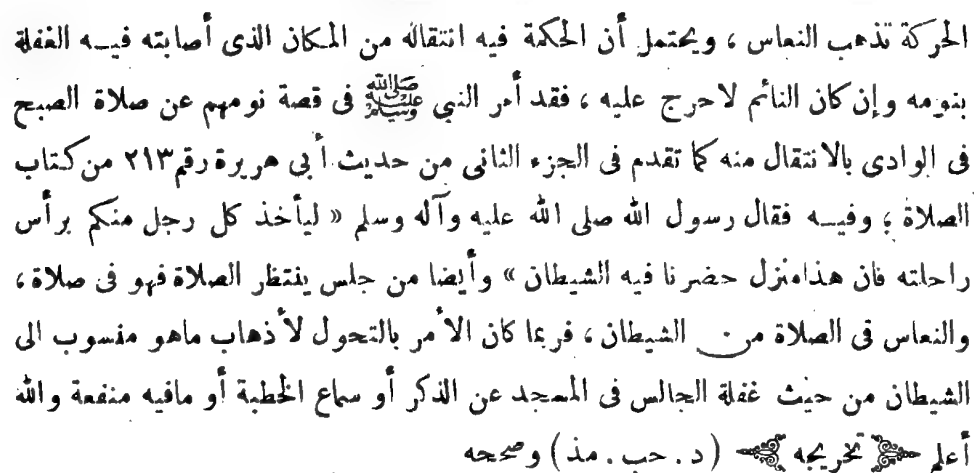 الحركة تذهب النعاس ، ويحتمل أن الحكمة فيه انتقاله من المكان الذى أصابته فيه الغفلة
بنومه وإن كان النائم لاحرج عليه ، فقد أمر النبي ﷺ فى قصة نومهم عن صلاة الصبح
فى الوادى بالانتقال منه كما تقدم فى الجزء الثانى من حديث أبى هريرة رقم ٢١٣ من كتاب
الصلاة ؛ وفيه فقال رسول الله صلى الله عليه وآله وسلم « ليأخذ كل رجل منكم برأس
راحلته فان هذا منزل حضرنا فيه الشيطان » وأيضا من جلس ينتظر الصلاة فهو فى صلاة ،
والنعاس فى الصلاة من الشيطان ، فربما كان الأمر بالتحول لأذهاب ماهو منسوب الى
الشيطان من حيث غفلة الجالس فى المسجد عن الذكر أو سماع الخطبة أو مافيه منفعة والله
أعلم تخريجه ( د . حب . مذ ) وصححه